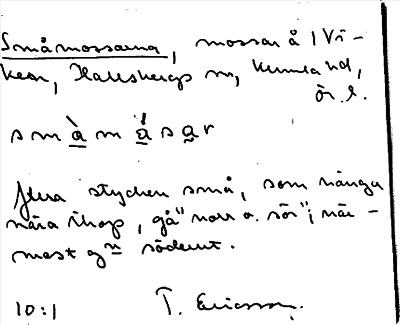 Småmossarna, mossar å 1 Vi-
ken, Hallsbergs sn, Kumla hd,
Ör. l.
s m à m ǻ s a r
flera stycken små, som hänga
nära ihop, gå "norr o. sör", när-
mast söderut.
10:1 T. Ericsson.